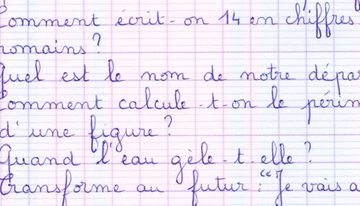 Comment écrit-on 14 en chiffres
romains ?
Quel est le nom de notre dépa
Comment calcule-t-on le périm
d'une figure ?
Quand l'eau gèle-t-elle ?
Transforme au futur : "Je vais a